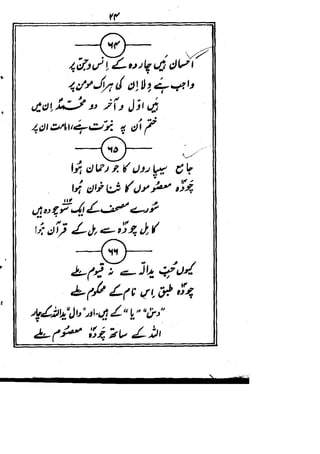 ۲۳
۶۴
احسان ہیں چاردہ کے انس و جن پر
واجب ہے ولا ان کی ہر اک مومن پر
ہیں اول و آخر دو محمد ان میں
ختم ان پہ نبوت ہے امامت ان پر
۶۵
جامع سیپاروں کا جو رحمان ہوا
چودہ معصوموں کا ثنا خوان ہوا
سورے مصحف کے ایک سو چودہ ہیں
کامل چودہ سے مل کے قرآن ہوا
۶۶
کیوں حب یداللہ سے نہ قیوم ملے
چودہ طبق اس نام کے محکوم ملے
"دس" "یا" کے ہیں اور "دال" یداللہ کے چار
اللہ کے ساتھ چودہ معصوم ملے